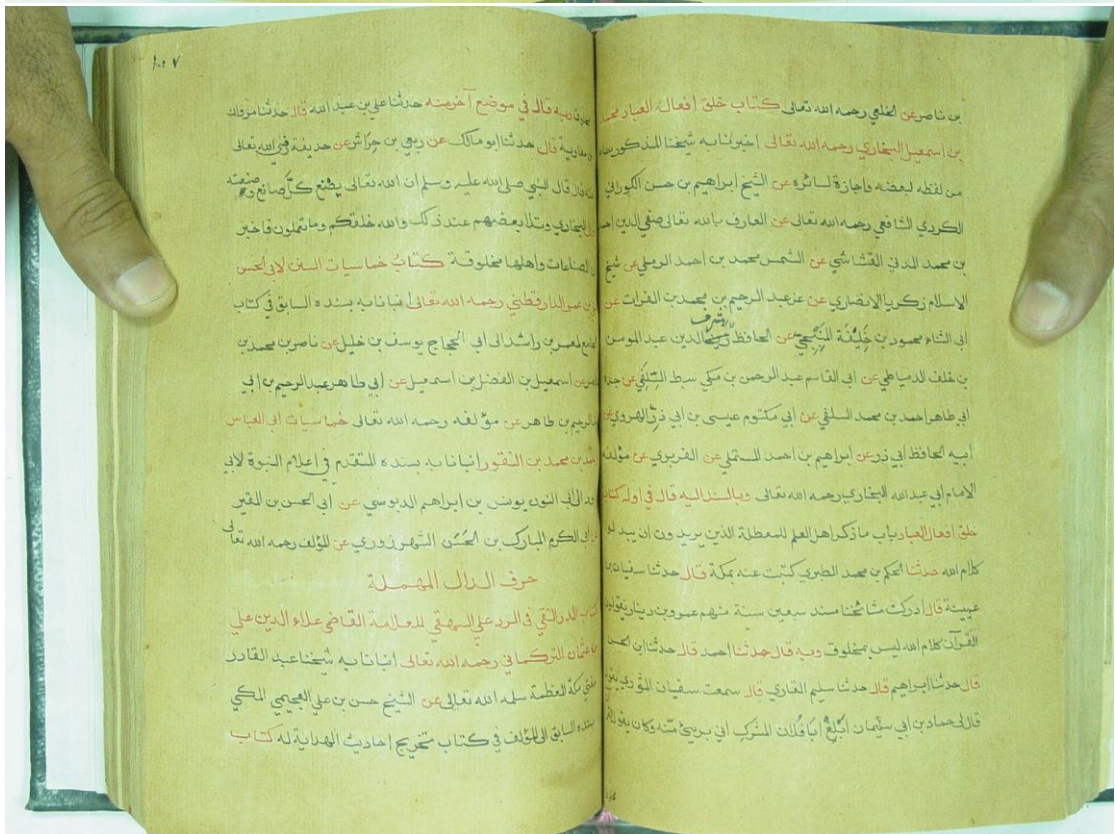 بن ناصر عن الخلعي رحمه الله تعالى كتاب خلق افعال العباد لمحمد
بن اسمعيل البخاري رحمه الله تعالى اخبرنا به شيخنا المذكور سماعا
من لفظه لبعضه واجازة لسائره عن الشيخ ابراهيم بن حسن الكوراني
الكردي الشافعي رحمه الله تعالى عن العارف بالله تعالى صفي الدين احمد
بن محمد المدني القشاشي عن الشمس محمد بن احمد الرملي عن شيخ
الاسلام زكريا الانصاري عن عز عبد الرحيم بن محمد بن الفرات عن
أبي الثناء محمود بن خليفة المنبجي عن الحافظ شرف الدين عبد المومن
بن خلف الدمياطي عن ابي القاسم عبد الرحمن بن مكي سبط السلفي عن جده
ابي طاهر احمد بن محمد السلفي عن ابي مكتوم عيسى بن ابي ذر الهروي عن
ابيه الحافظ ابي ذر عن ابراهيم بن احمد المستملي عن الفربري عن مؤلفه
الامام أبي عبد الله البخاري رحمه الله تعالى وبالسند اليه قال في اوله كتاب
خلق افعال العباد باب ما ذكر اهل العلم للمعطلة الذين يريدون ان يبدلوا
كلام الله حدثنا الحكم بن محمد الطبري كتبت عنه بمكة قال حدثنا سفيان بن
عيينة قال ادركت مشائخنا منذ سبعين سنة منهم عمرو بن دينار يقولون
القرآن كلام الله ليس بمخلوق وبه قال حدثنا احمد قال حدثنا ابن الحسن
قال حدثنا ابراهيم قال حدثنا سليم القاري قال سمعت سفيان الثوري يقول
قال لي حماد بن ابي سليمان ابلغ ابا فلان المشرك اني بريئ منه وكان يقول
وبه قال في موضع آخر منه حدثنا علي بن عبد الله قال حدثنا مروان
بن معاوية قال حدثنا ابو مالك عن ربعي بن حراش عن حذيفة رضي الله تعالى
قال قال النبي صلى الله عليه وسلم ان الله تعالى يصنع كل صانع وصنعته
البخاري وتلا بعضهم عند ذلك والله خلقكم وما تعملون فاخبر
ان الصناعات واهلها مخلوقة كتاب خماسيات السنن لابي الحسن
علي بن عمر الدارقطني رحمه الله تعالى انبانا به بسنده السابق في كتاب
الجامع لمعمر بن راشد الى ابي الحجاج يوسف بن خليل عن ناصر بن محمد بن
عن اسمعيل بن الفضل بن اسمعيل عن ابي طاهر عبد الرحيم بن ابي
عبد الرحيم بن طاهر عن مؤلفه رحمه الله تعالى خماسيات ابي العباس
بن محمد بن النقور انبانا به بسنده المتقدم في اعلام النبوة لابي
داود الى ابي النون يونس بن ابراهيم الدبوسي عن ابي الحسن بن المقير
عن ابي الكرم المبارك بن الحسن الشهرزوري عن المؤلف رحمه الله تعالى
حرف الدال المهملة
كتاب الدر النقي في الرد على البيهقي للعلامة القاضي علاء الدين علي
بن عثمان التركماني رحمه الله تعالى انبانا به شيخنا عبد القادر
مفتي مكة المعظمة سلمه الله تعالى عن الشيخ حسن بن علي العجيمي المكي
بسنده السابق الى المؤلف في كتاب تخريج احاديث الهداية له كتاب